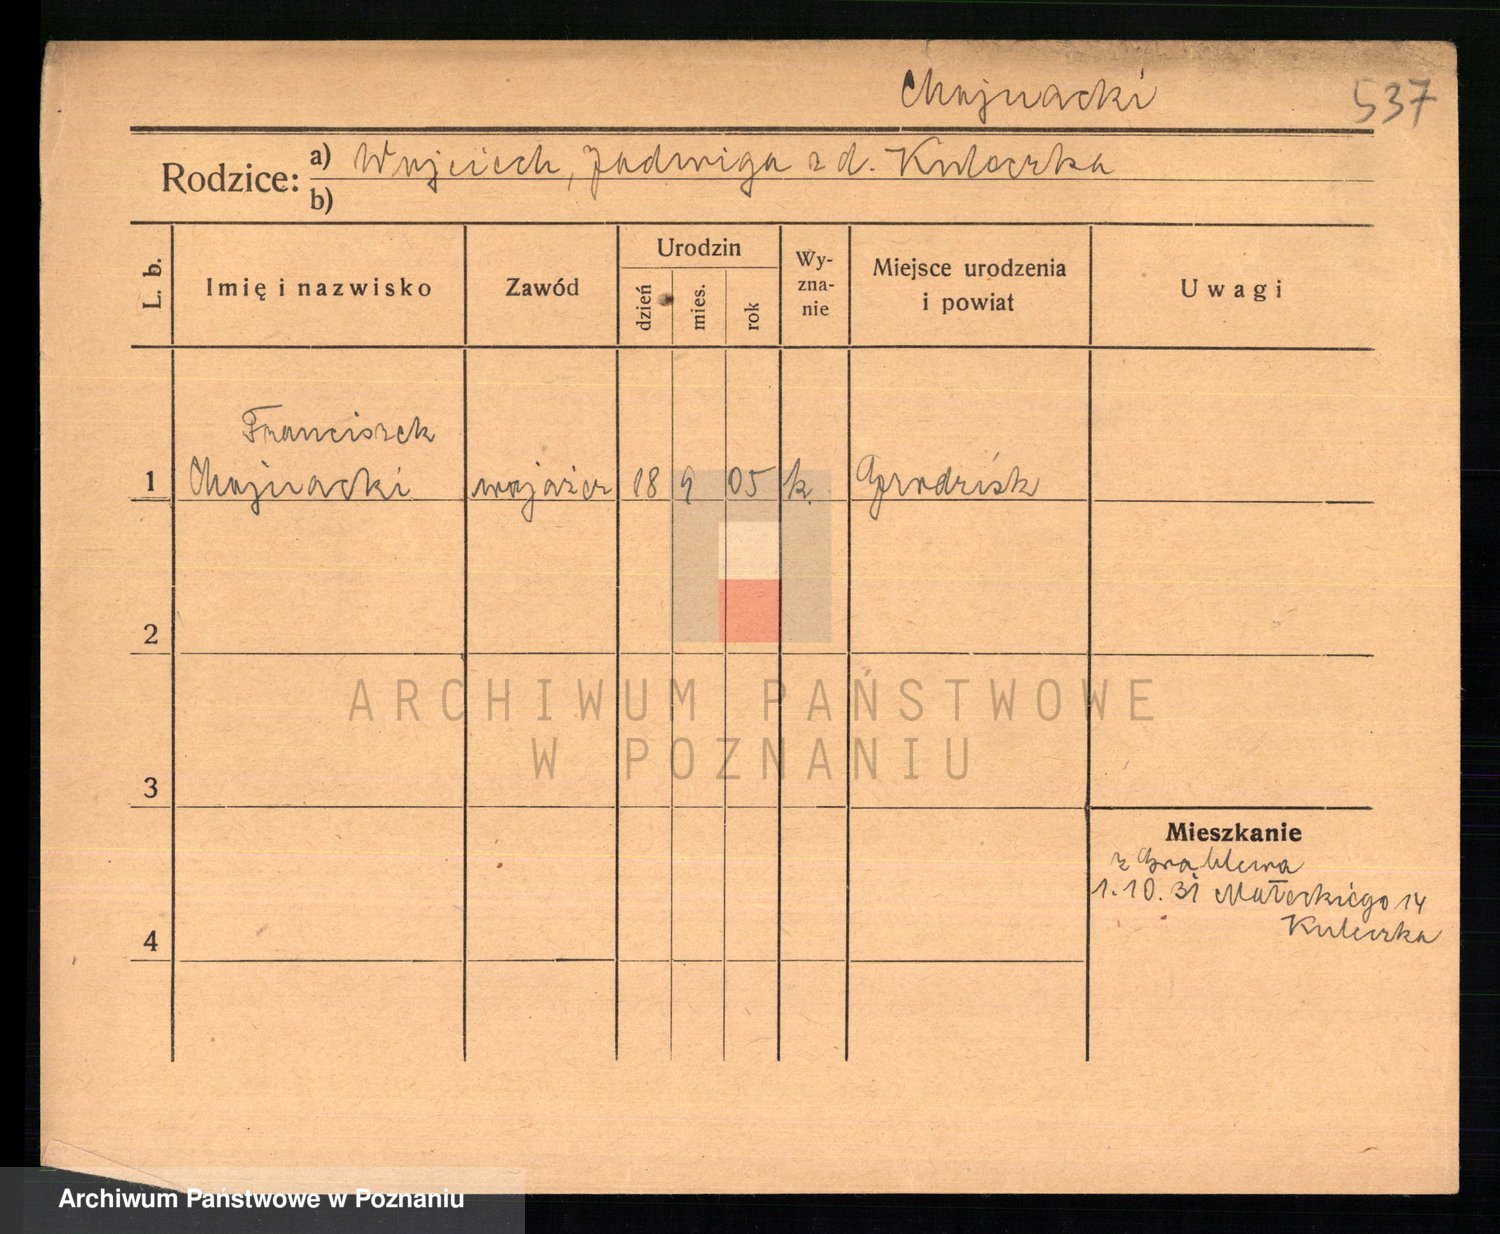 Chojnacki 537
Rodzice: a) Wojciech, Jadwiga z d. Kuleczka
b)
L. b. Imię i nazwisko Zawód Urodzin dzień mies. rok Wyznanie Miejsce urodzenia i powiat Uwagi
Franciszek
1 Chojnacki wojażer 18 9 05 k. Grodzisk
2
ARCHIWUM PAŃSTWOWE
W POZNANIU
3
Mieszkanie
z Grąblewa
1.10.31 Małeckiego 14
Kuleczka
4
Archiwum Państwowe w Poznaniu